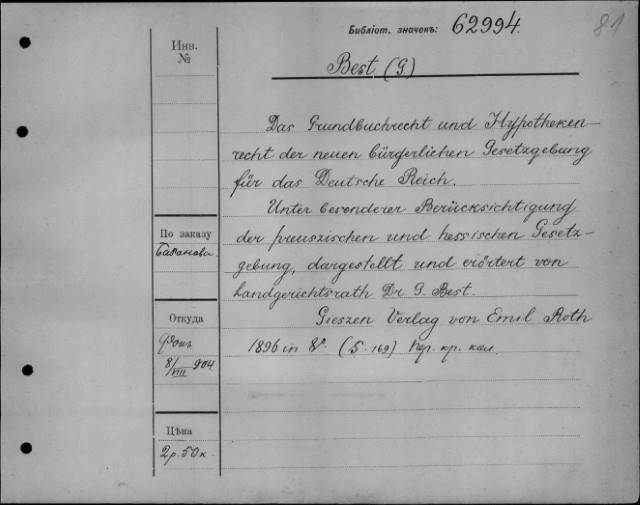 Библіот. значекъ: 62994.
81
Инв.
№
Best (G)
Das Grundbuchrecht und Hypotheken-
recht der neuen bürgerlichen Gesetzgebung
für das Deutsche Reich.
Unter besonderer Berücksichtigung
der preuszischen und hessischen Gesetz-
gebung, dargestellt und erörtert von
Landgerichtsrath Dr. G. Best.
Gieszen Verlag von Emil Roth
1896 in 8º. (S. 169) пер. кр. кол.
По заказу
Баранова
Откуда
8/VIII 904
Цѣна
2 р. 50 к.